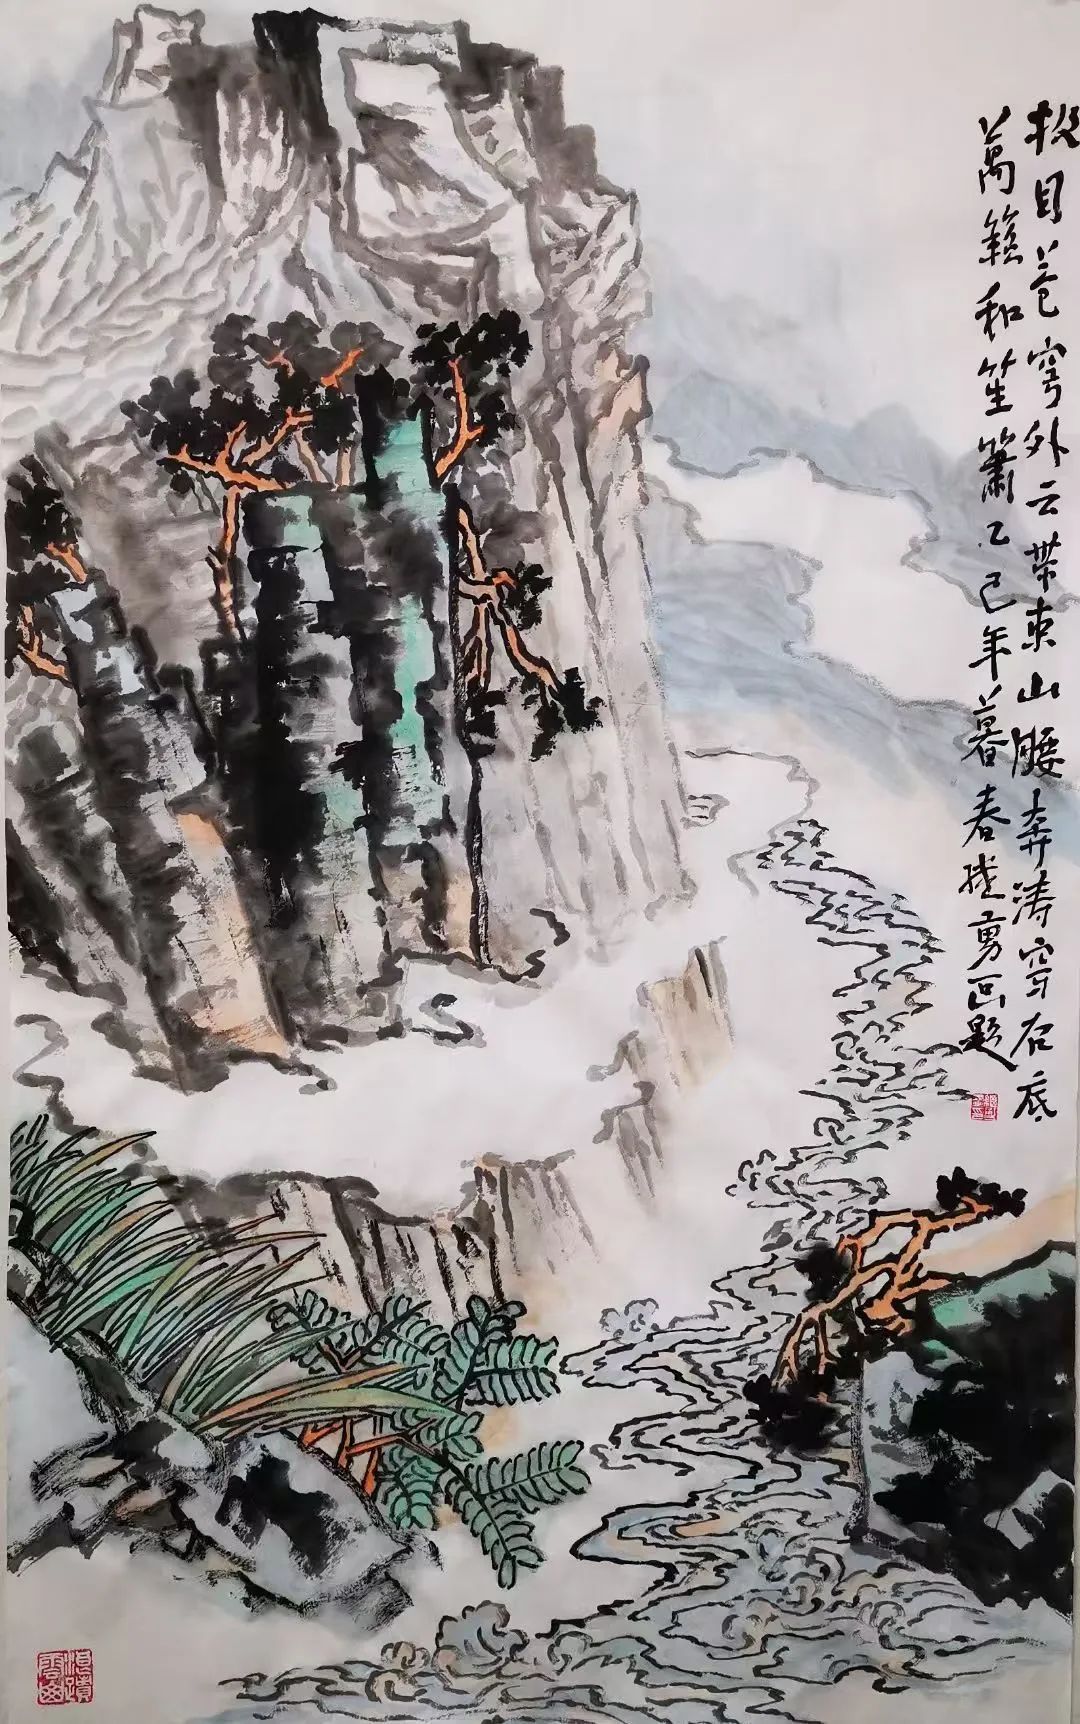 极目苍穹外云带束山腰奔涛穿石底
万籁和笙箫乙巳年暮春陆勇画题